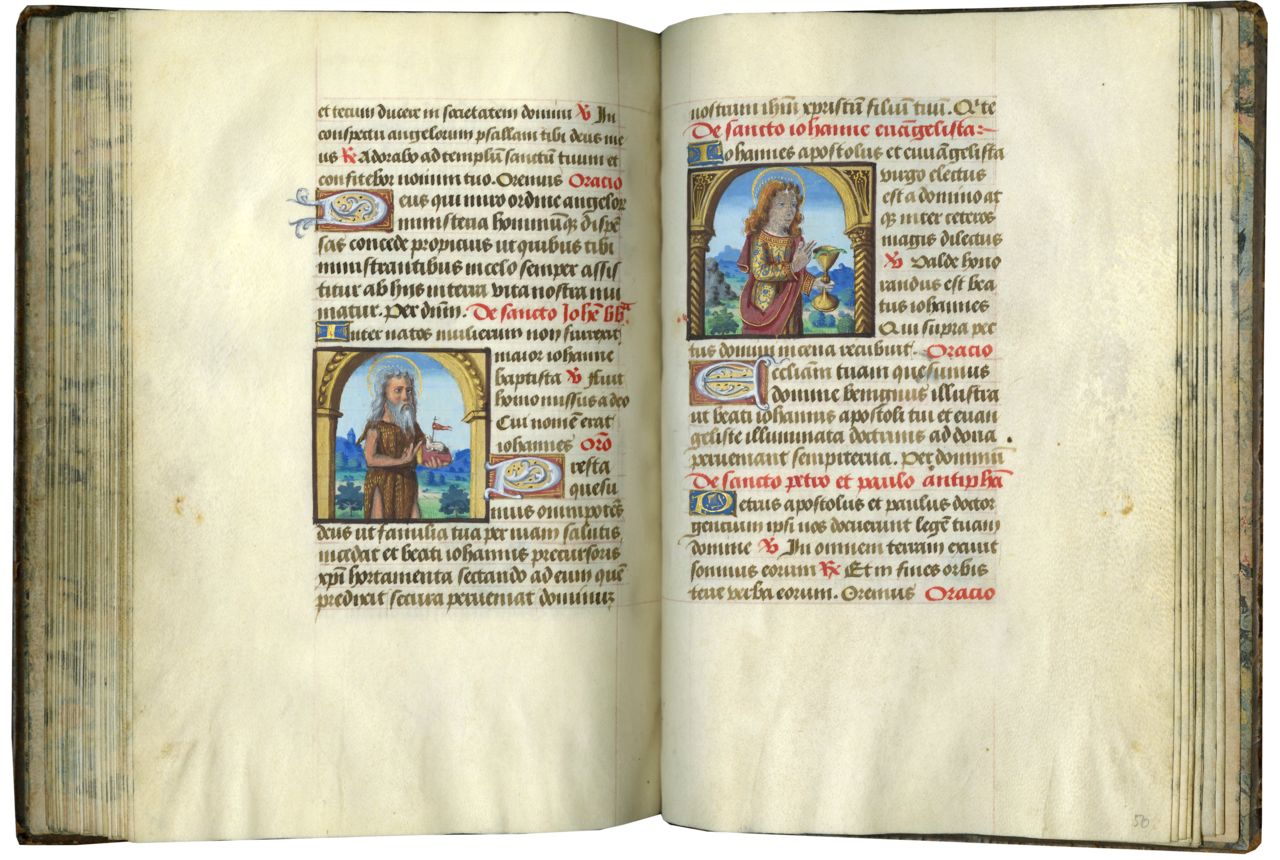 et tecum ducere in societatem domini ℣ In
conspectu angelorum psallam tibi deus me
us ℟ Adorabo ad templū sanctū tuum et
confitebor nomini tuo. Oremus Oracio
Deus qui miro ordine angelor
ministeria hominūq̄ dispē
sas concede propicius ut quibus tibi
ministrantibus in celo semper assis
titur ab hiis in terra vita nostra mu
niatur. Per dnm̄. De sancto Johē bbᵃ
Inter natos mulierum non surrexit
maior iohanne
baptista ℣ Fuit
homo missus a deo
Cui nomē erat
iohannes Orō
Presta
quesu
mus omnipotēs
deus ut familia tua per viam salutis
incedat et beati iohannis precursoris
xp̄i hortamenta sectando ad eum quē
predixit secura perveniat dominū
nostrum ihm̄ xpristū filiū tuū. Q̄ te
De sancto iohanne euāgelista
Iohannes apostolus et euuāgelista
virgo electus
est a domino at
q̄ inter ceteros
magis dilectus
℣ Valde hono
randus est bea
tus iohannes
Qui supra pec
tus domini in cena recubuit. Oracio
Eccliam tuam quesumus
domine benignus illustra
ut beati iohannis apostoli tui et euan
geliste illuminata doctrinis ad dona
perveniant sempiterna. Per dominū
De sancto petro et paulo antiphā
Petrus apostolus et paulus doctor
gentium ipsi nos docuerunt legē tuam
domine ℣ In omnem terram exiuit
sonnus eorum ℟ Et in fines orbis
terre verba eorum. Oremus Oracio
50